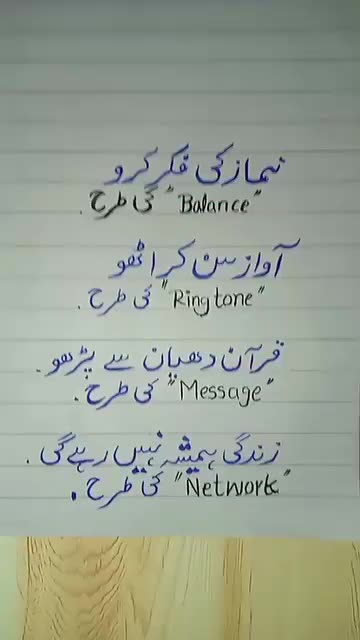 نماز کی فکر کرو
"Balance" کی طرح.
آواز سن کر اٹھو
"Ringtone" کی طرح.
قرآن دھیان سے پڑھو.
"Message" کی طرح.
زندگی ہمیشہ نہیں رہے گی.
"Network" کی طرح.